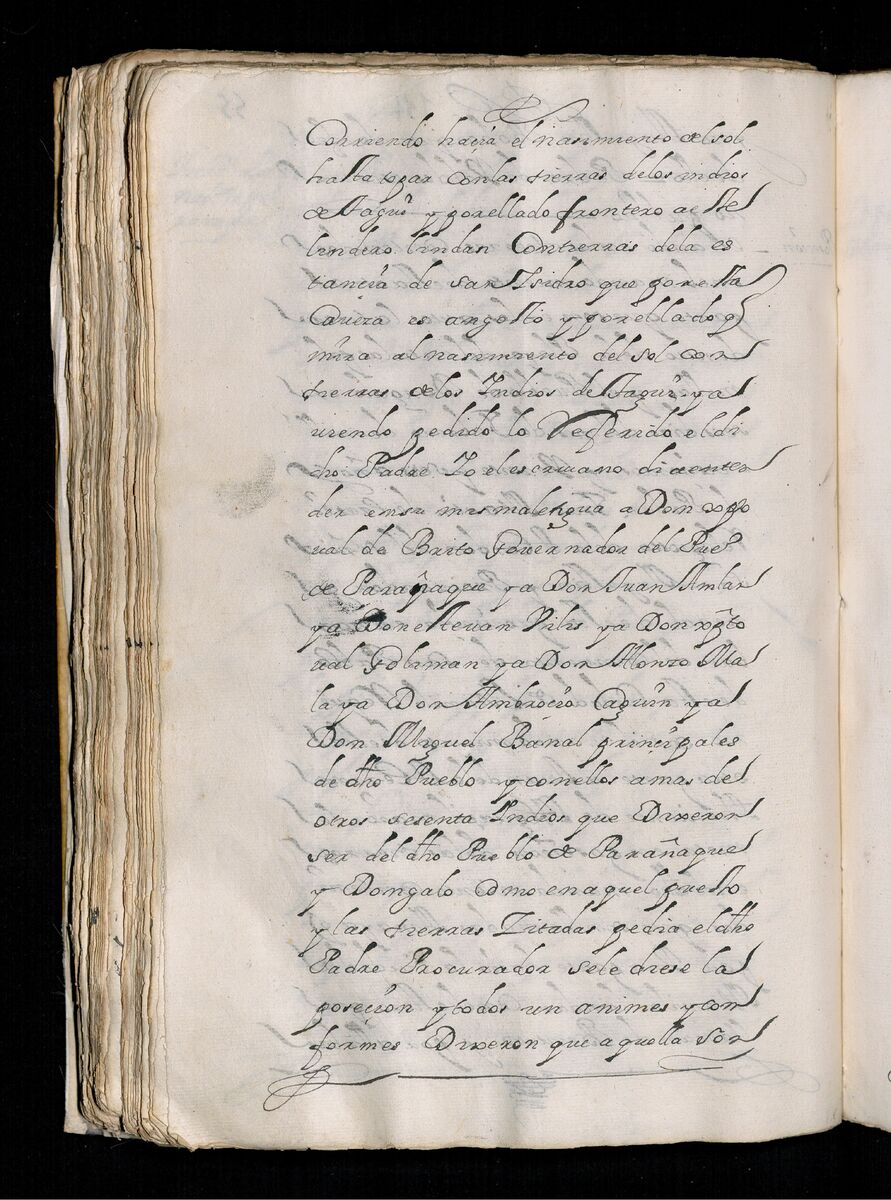 Corriendo haçia el nasimiento del sol
hasta topar con las tierras de los indios
de Taguî y por el lado frontero a este
lindero lindan Con tierras de la es
tancia de san Isidro que por esta
Cavesa es angosto y por el lado q̃
mira al nasimiento del sol con
tierras de los Indios de Taguî y a
viendo pedido lo Referido el di
cho Padre Io el escrivano di a enten
der en su misma lengua a Don xpto
ual de Brito Gouernador del Pueº
de Parañaque y a Don Juan Amlan
y a Don esteuan Pilis y a Don xp̃to
ual Goliman y a Don Alonzo Ma
la y a Don Ambrocio Caguin y a
Don Miguel Banal prinçipales
de dho Pueblo y con ellos a mas de
otros sesenta Indios que Dixeron
ser del dho Pueblo de Parañaque
y Dongalo Como en aquel puesto
y las tierras Zitadas pedia el dho
Padre Procurador se le diese la
poseçion y todos un animes y con
formes Dixeron que aquella son